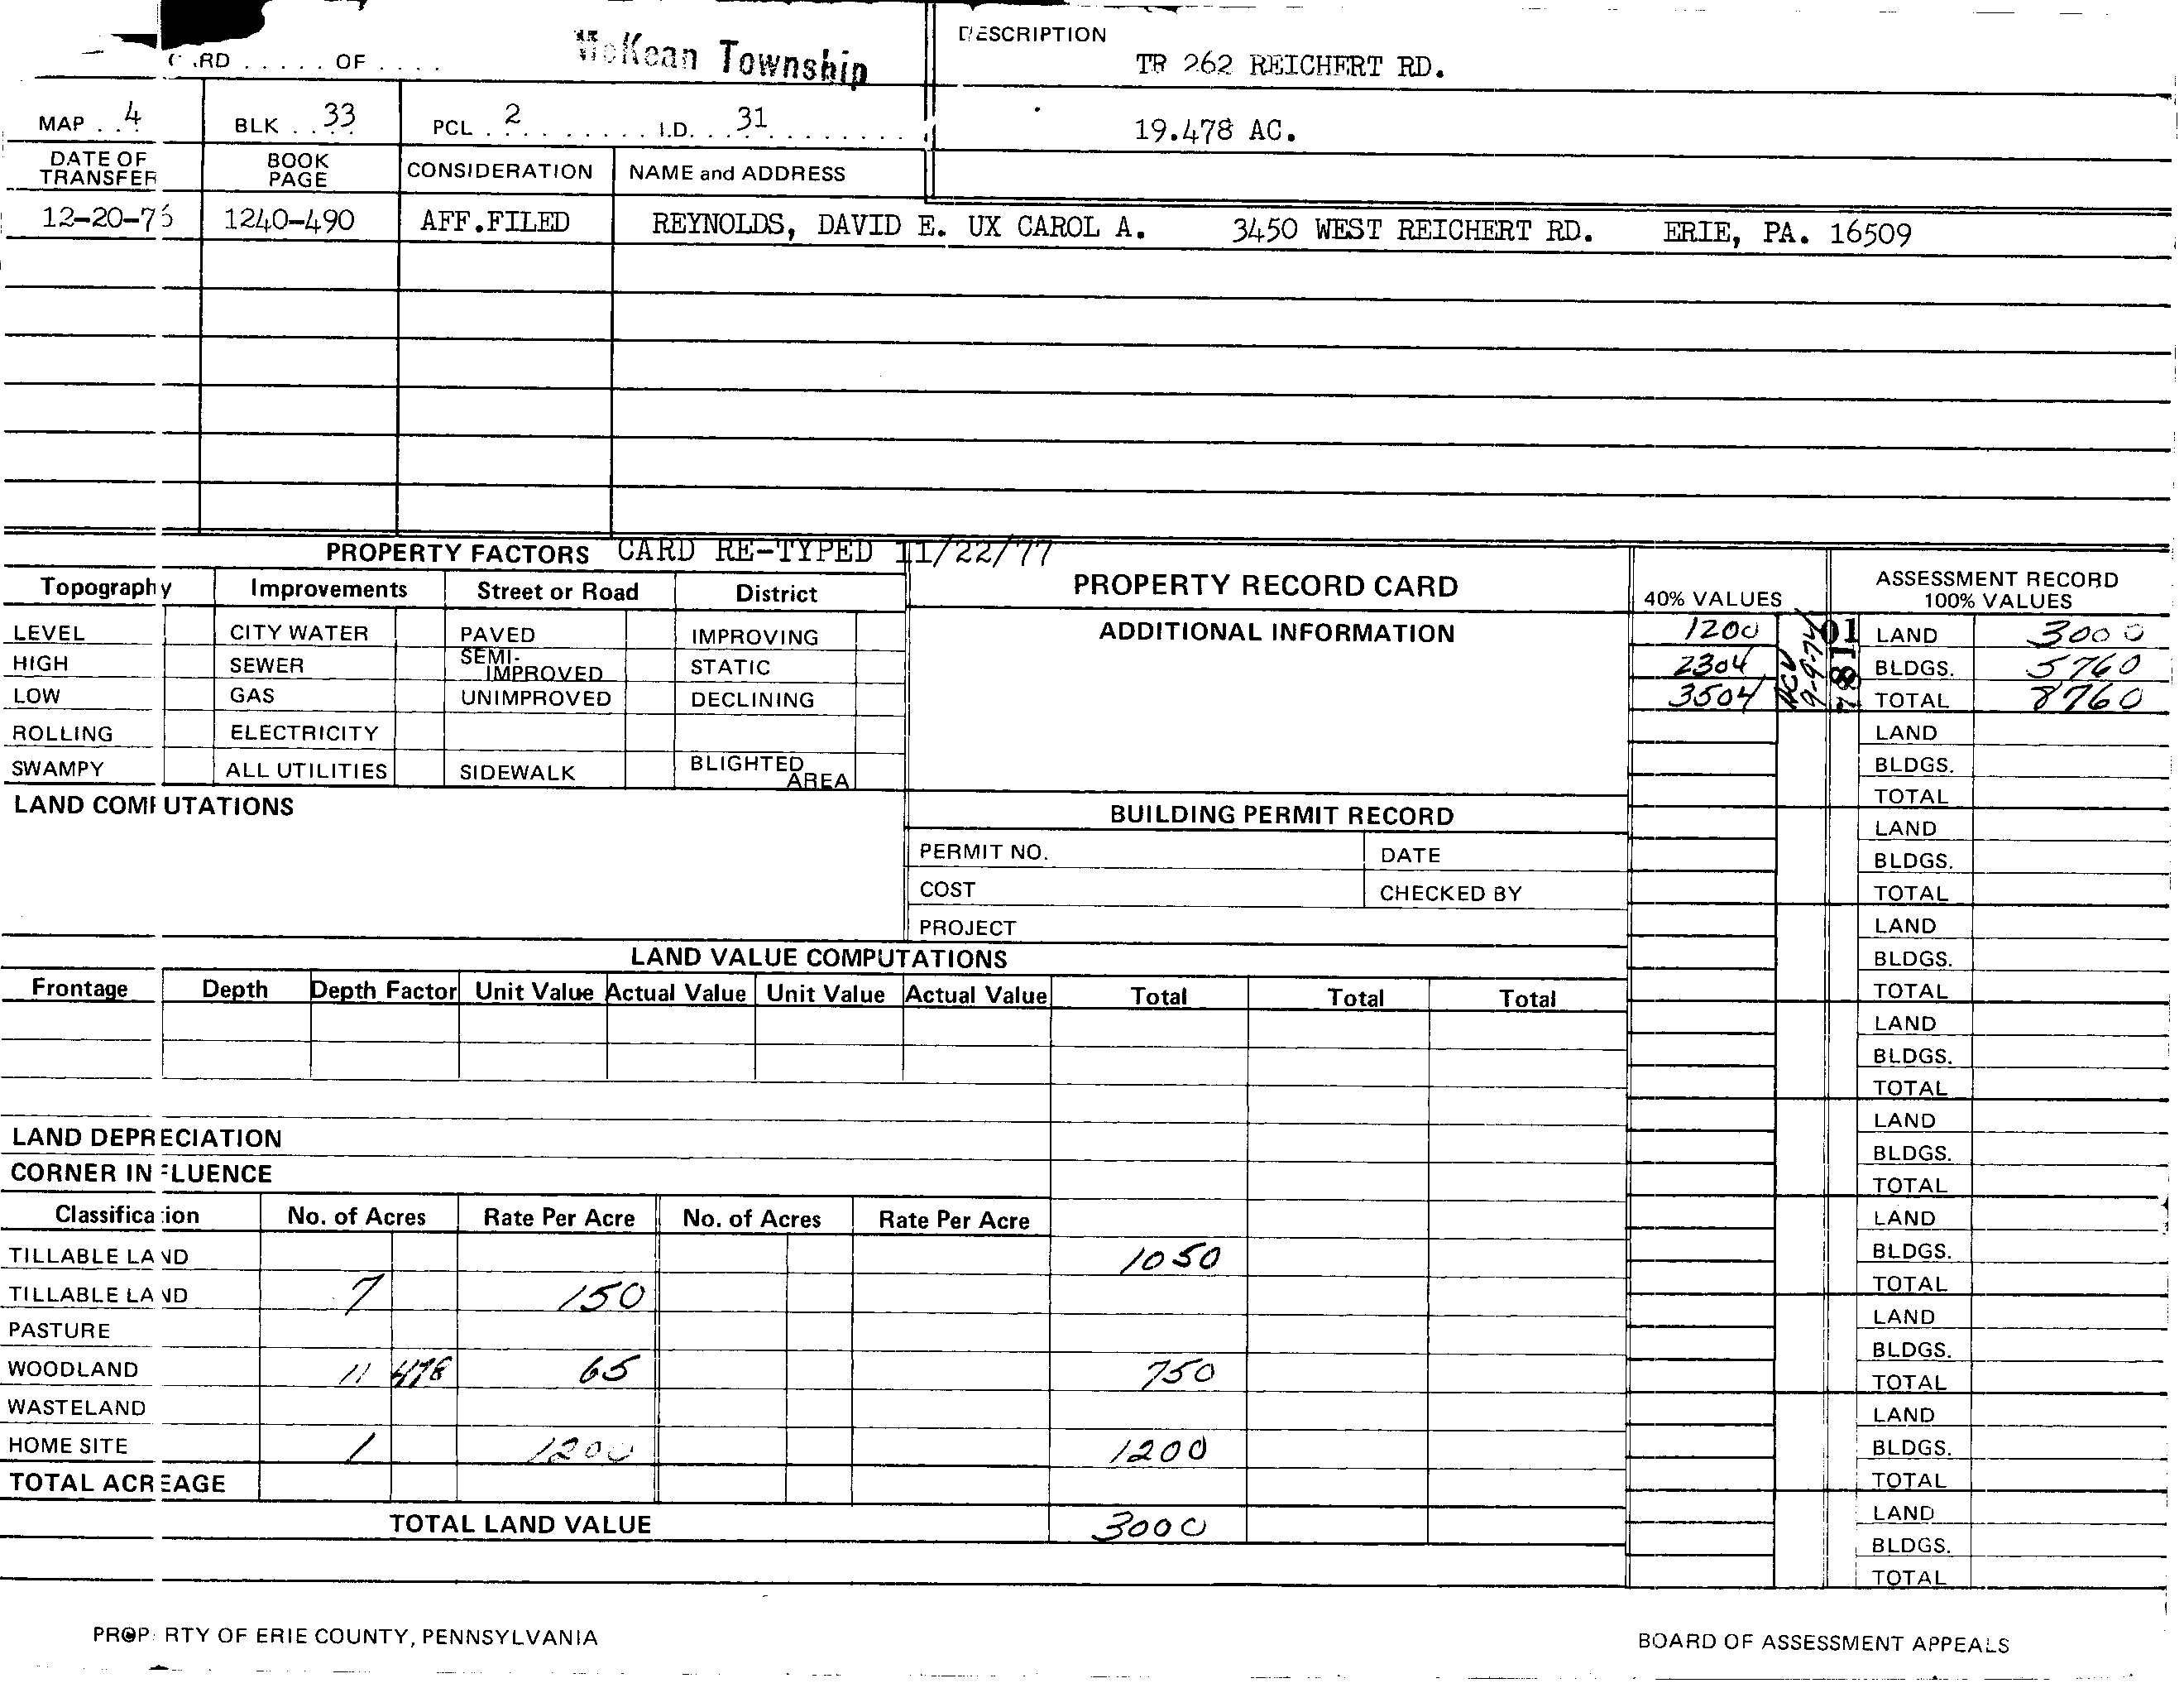 CARD ..... OF ....
McKean Township
DESCRIPTION
TR 262 REICHERT RD.
MAP .. 4 BLK .. 33 PCL .. 2 ........ I.D. ... 31 ........
19.478 AC.
DATE OF TRANSFER BOOK PAGE CONSIDERATION NAME and ADDRESS
12-20-76 1240-490 AFF.FILED REYNOLDS, DAVID E. UX CAROL A. 3450 WEST REICHERT RD. ERIE, PA. 16509
PROPERTY FACTORS CARD RE-TYPED 11/22/77
Topography Improvements Street or Road District
LEVEL CITY WATER PAVED IMPROVING
HIGH SEWER SEMI-IMPROVED STATIC
LOW GAS UNIMPROVED DECLINING
ROLLING ELECTRICITY
SWAMPY ALL UTILITIES SIDEWALK BLIGHTED AREA
LAND COMPUTATIONS
PROPERTY RECORD CARD
ADDITIONAL INFORMATION
BUILDING PERMIT RECORD
PERMIT NO. DATE
COST CHECKED BY
PROJECT
40% VALUES
ASSESSMENT RECORD
100% VALUES
1200 LAND 3000
2304 BLDGS. 5760
3504 TOTAL 8760
LAND
BLDGS.
TOTAL
LAND
BLDGS.
TOTAL
LAND
BLDGS.
TOTAL
LAND
BLDGS.
TOTAL
LAND
BLDGS.
TOTAL
LAND
BLDGS.
TOTAL
LAND
BLDGS.
TOTAL
LAND
BLDGS.
TOTAL
LAND
BLDGS.
TOTAL
LAND VALUE COMPUTATIONS
Frontage Depth Depth Factor Unit Value Actual Value Unit Value Actual Value Total Total Total
LAND DEPRECIATION
CORNER INFLUENCE
Classification No. of Acres Rate Per Acre No. of Acres Rate Per Acre
TILLABLE LAND 1050
TILLABLE LAND 7 150
PASTURE
WOODLAND 11 478 65 750
WASTELAND
HOME SITE 1 1200 1200
TOTAL ACREAGE
TOTAL LAND VALUE 3000
PROPERTY OF ERIE COUNTY, PENNSYLVANIA
BOARD OF ASSESSMENT APPEALS